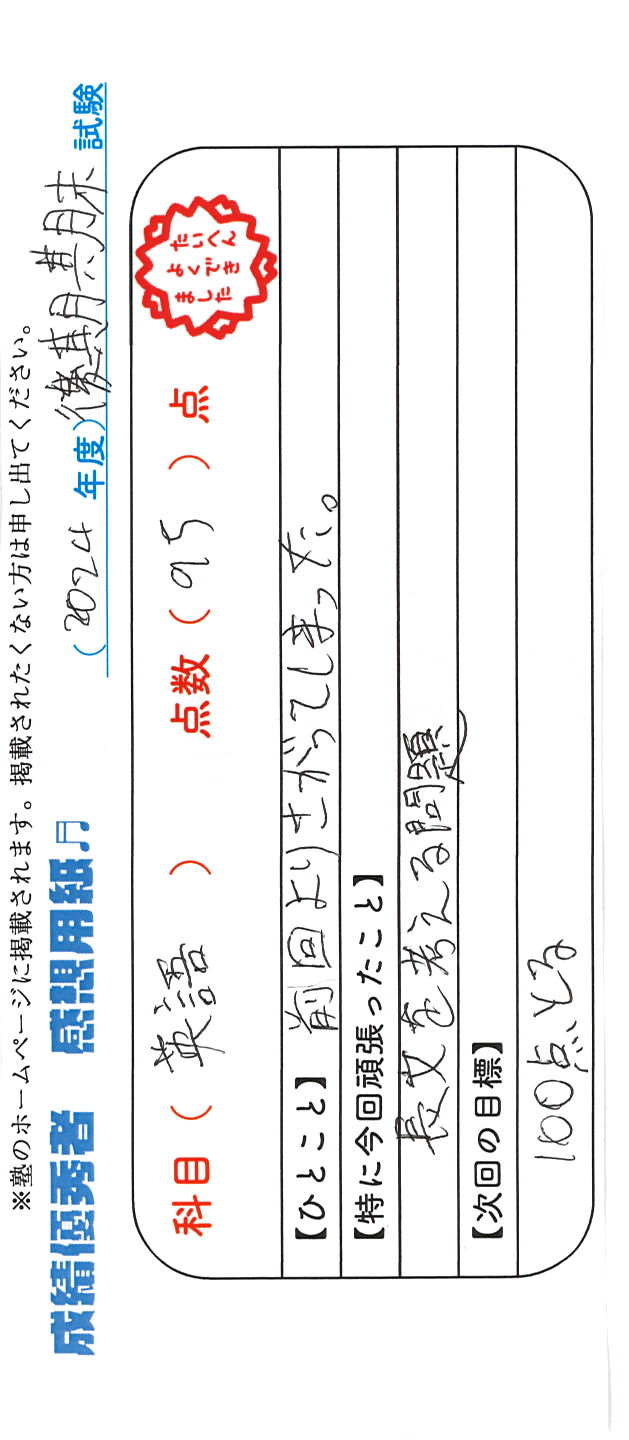 ※塾のホームページに掲載されます。掲載されたくない方は申し出てください。
成績優秀者 感想用紙♬ (2024年度)後期期末試験
科目( 英語 ) 点数( 95 )点
たいへん
よくでき
ました
【ひとこと】前回よりさがってしまった。
【特に今回頑張ったこと】
長文を考える問題
【次回の目標】
100点とる